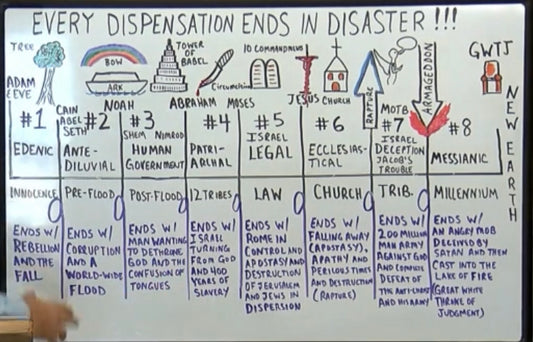 EVERY DISPENSATION ENDS IN DISASTER !!!
TREE
ADAM
& EVE
BOW
ARK
TOWER
OF
BABEL
Circumcision
10 COMMANDMENTS
JESUS
CHURCH
RAPTURE
ARMAGEDDON
GWTJ
CAIN
ABEL
SETH
NOAH
ABRAHAM
MOSES
MOTB
NEW EARTH
#1
EDENIC
#2
ANTE-
DILUVIAL
#3
SHEM NIMROD
HUMAN
GOVERNMENT
#4
PATRI-
ARCHAL
#5
ISRAEL
LEGAL
#6
ECCLESIAS-
TICAL
#7
ISRAEL
DECEPTION
JACOB'S
TROUBLE
#8
MESSIANIC
INNOCENCE
PRE-FLOOD
POST-FLOOD
12 TRIBES
LAW
CHURCH
TRIB.
MILLENNIUM
ENDS W/
REBELLION
AND THE
FALL
ENDS W/
CORRUPTION
AND A
WORLD-WIDE
FLOOD
ENDS W/
MAN WANTING
TO DETHRONE
GOD AND THE
CONFUSION OF
TONGUES
ENDS W/
ISRAEL
TURNING
FROM GOD
AND 400
YEARS OF
SLAVERY
ENDS W/
ROME IN
CONTROL AND
APOSTASY AND
DESTRUCTION
OF JERUSALEM
AND JEWS IN
DISPERSION
ENDS W/
FALLING AWAY
(APOSTASY),
APATHY AND
PERILOUS TIMES
AND DESTRUCTION
(RAPTURE)
ENDS W/
200 MILLION
MAN ARMY
AGAINST GOD
AND COMPLETE
DEFEAT OF
THE ANTI-CHRIST
AND HIS ARMY
ENDS W/
AN ANGRY MOB
DECEIVED BY
SATAN AND THEN
CAST INTO THE
LAKE OF FIRE
(GREAT WHITE
THRONE OF
JUDGMENT)